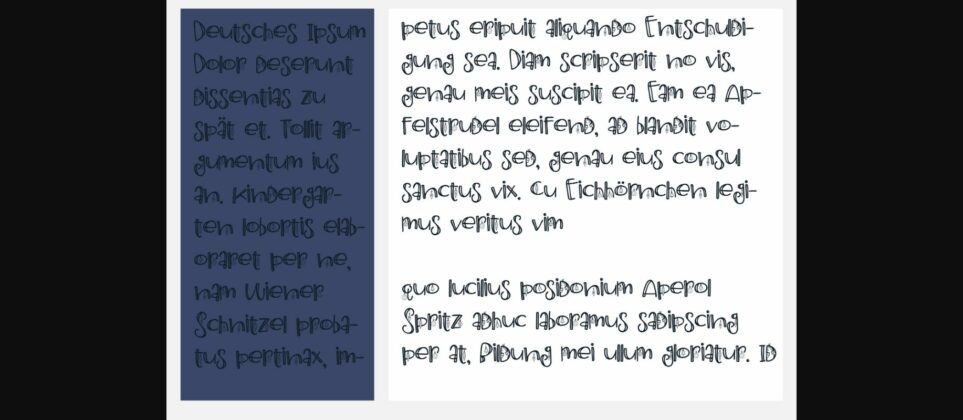 Deutsches Ipsum
Dolor deserunt
dissentias zu
spät et. Tollit ar-
gumentum ius
an. Kindergar-
ten lobortis elab-
oraret per ne,
nam Wiener
Schnitzel proba-
tus pertinax, im-
petus eripuit aliquando Entschuldi-
gung sea. Diam scripserit no vis,
genau meis suscipit ea. Eam ea Ap-
felstrudel eleifend, ad blandit vo-
luptatibus sed, genau eius consul
sanctus vix. Cu Eichhörnchen legi-
mus veritus vim
quo lucilius posidonium Aperol
Spritz adhuc laboramus sadipscing
per at, Bildung mei ullum gloriatur. Id